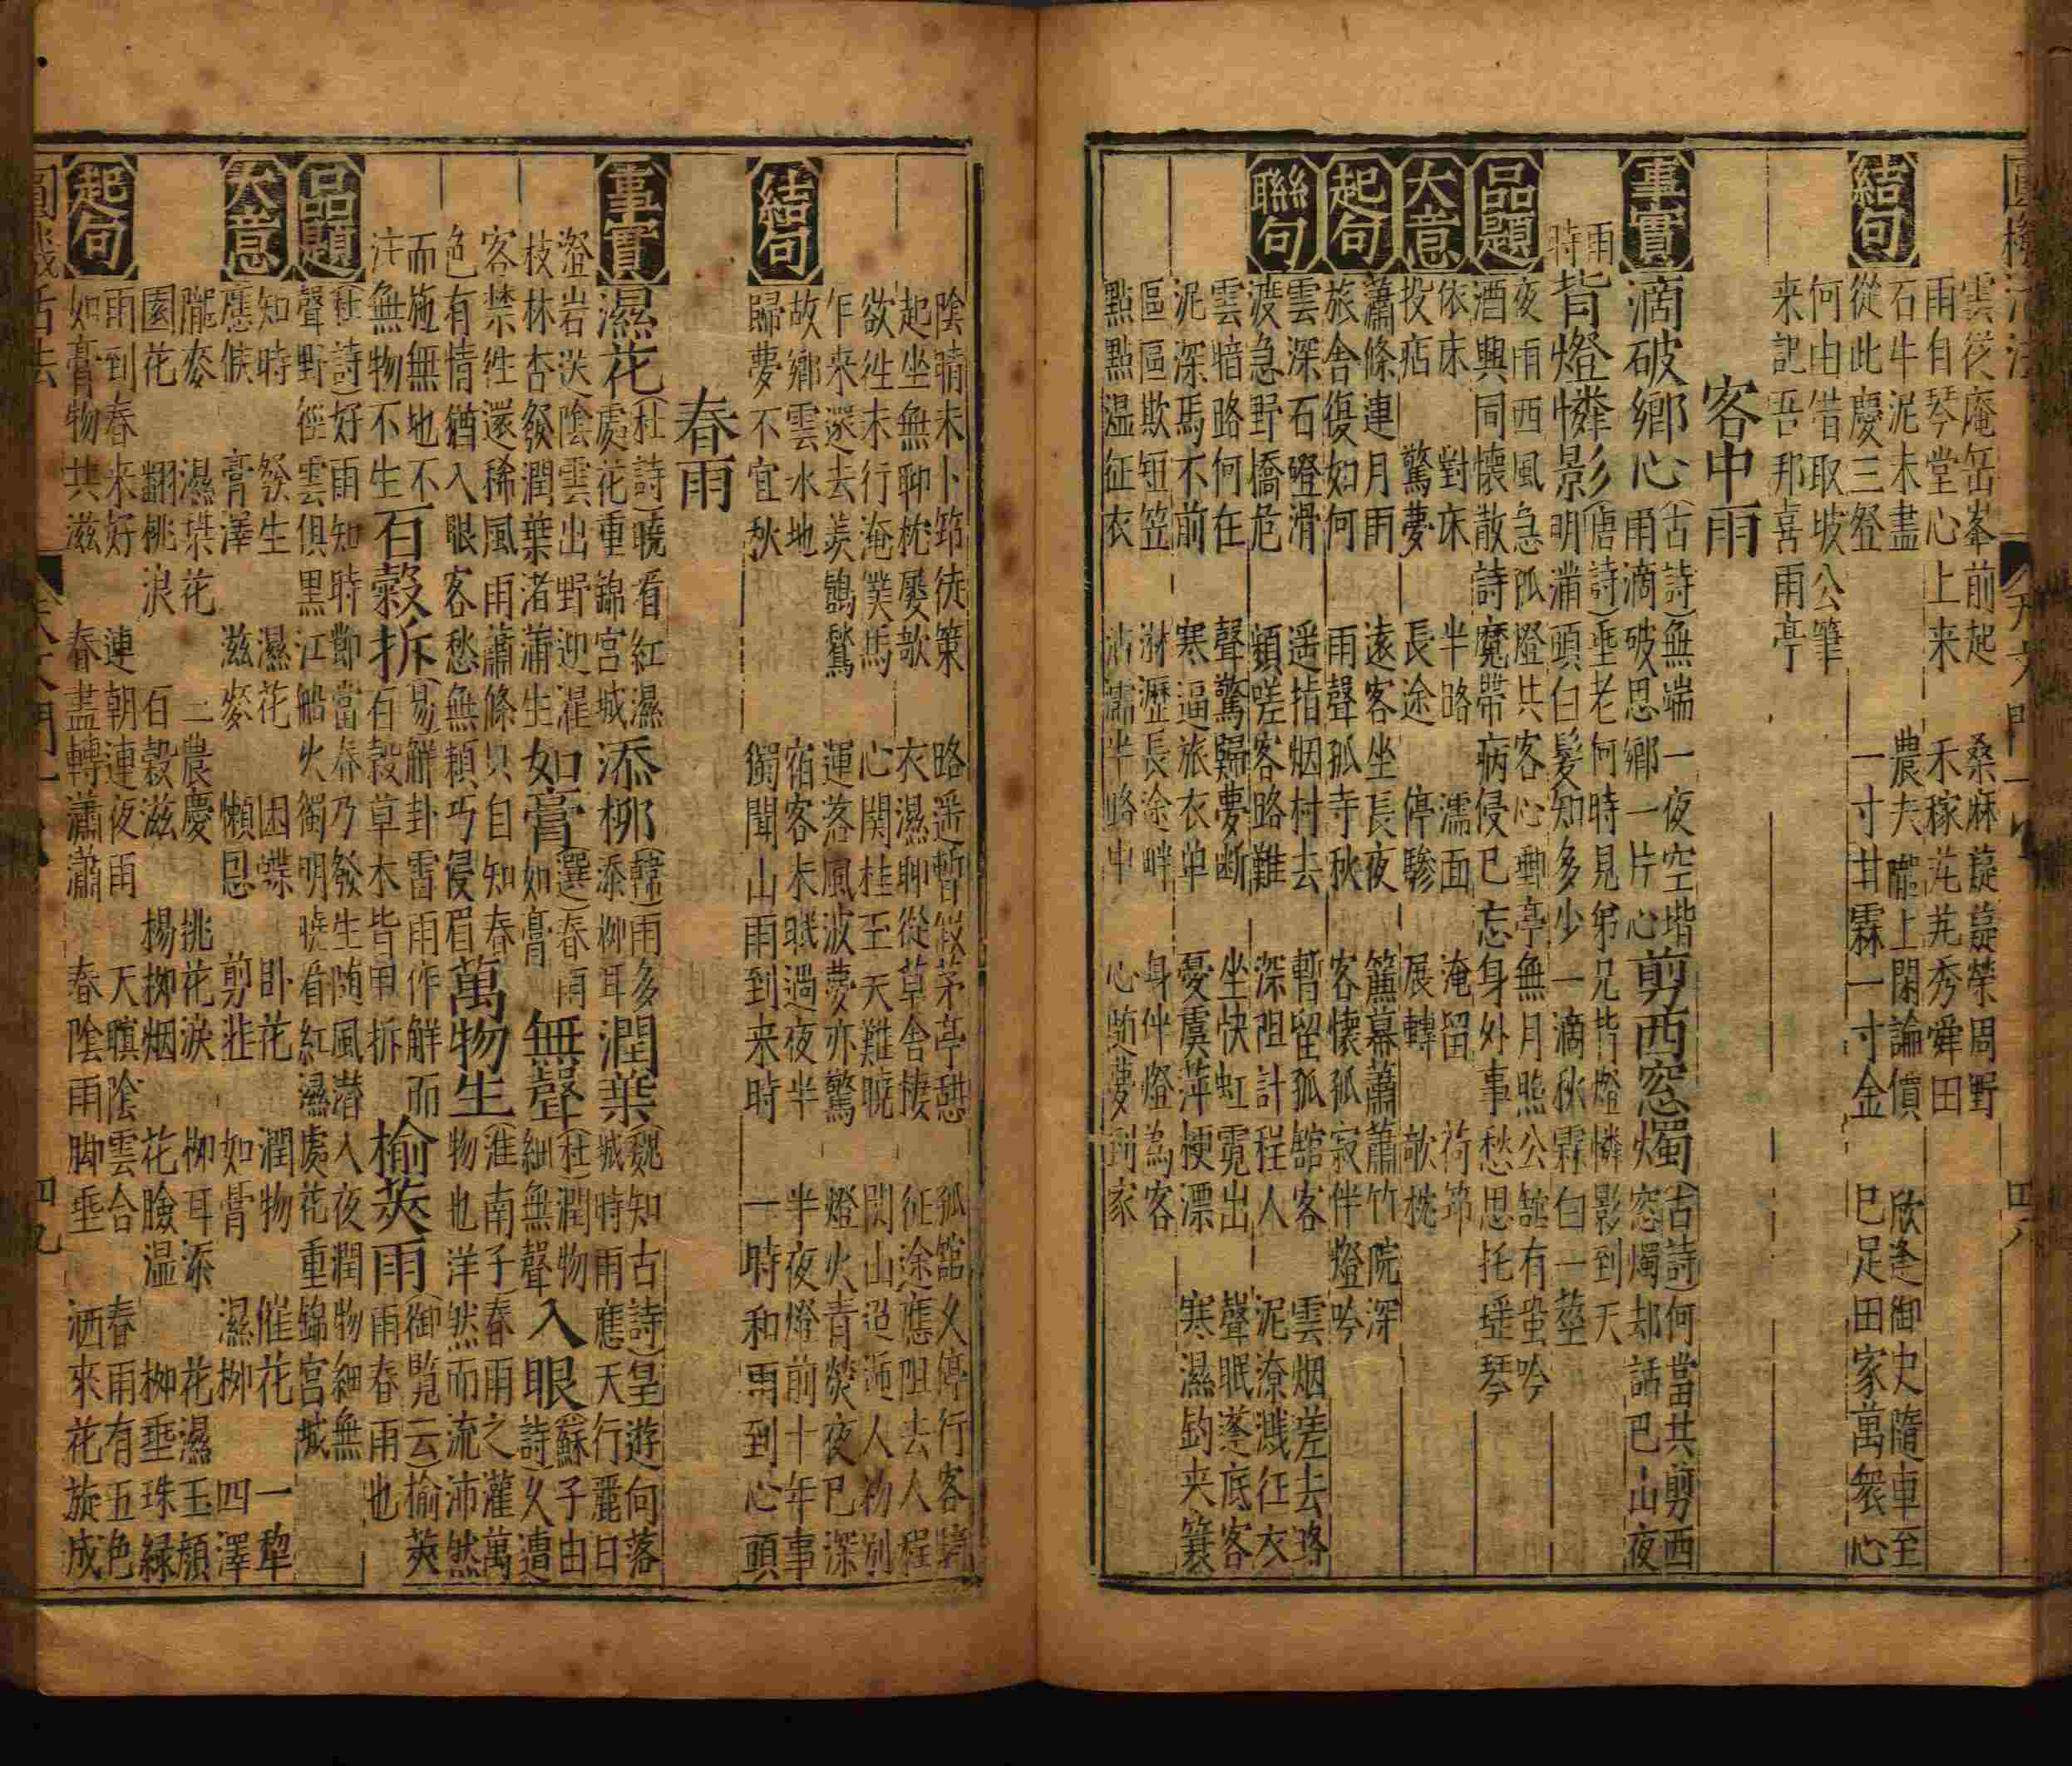 結句
雲從庵缶峯前起 桑麻蔉蔉榮周野
雨自琴堂心上来 禾稼芃芃秀舜田
石牛泥未盡 農夫壠上閑論價 欣逢御史隨車至
從此慶三登 一寸甘霖一寸金 已足田家萬衆心
何由借取坡公筆
来記吾邦喜雨亭
客中雨
事實
滴破鄉心(古詩)無端一夜空堦雨滴破思鄉一片心 剪西窓燭(古詩)何當共剪西窓燭却話巴山夜
雨時 背燈憐影(唐詩)垂老何時見弟兄背燈憐影到天明滿頭白髮知多少一滴秋霖白一莖
品題
夜雨西風急孤燈共客心郵亭無月照公舘有蛩吟
酒興同懷散詩魔帶病侵已忘身外事愁思托瑤琴
大意
依床 對床 半略 濡面 淹留 荷笻
投店 驚夢 長途 停驂 展轉 欹枕
起句
蕭條連月雨 遠客坐長夜 簾幕蕭蕭竹院深
旅舍復如何 雨聲孤寺秋 客懷孤寂伴燈吟
聯句
雲深石磴滑 遥指烟村去 暫留孤舘客 雲烟差去路
渡急野橋危 頻嗟客路難 深阻計程人 泥潦濺征衣
雲暗路何在 聲驚歸夢断 坐快虹霓出 聲眠蓬底客
泥深馬不前 寒逼旅衣单 憂虞萍梗漂 寒濕釣夹簑
區區欺短笠 淋瀝長途畔 身伴燈為客
點點温征衣 沾濡半路中 心隨夢到家
陰晴未卜笻徒策 路遥暫假茅亭憇 孤舘久停行客騎
起坐無聊枕屡欹 衣濕聊從草舍棲 征途應阻去人程
欲徃未行淹僕馬 心関桂至天難曉 関山迢逓人物别
乍来還去羨鷗鷖 運落風波夢亦驚 燈火青熒夜已深
結句
故鄉雲水地 宿客未眠過夜半 半夜燈前十年事
歸夢不宜秋 獨聞山雨到来時 一時和雨到心頭
春雨
事實
濕花(杜詩)曉看紅濕處花重錦宮城 添柳(韓)雨多添柳耳 潤葉(魏知古詩)皇遊向洛城時雨應天行麗日
澄岩送陰雲出野迎濯枝林杏發潤葉渚蒲生 如膏(選)春雨如膏 無聲(杜)潤物細無聲 入眼(蘇子由詩)久遭
客禁徃還稀風雨蕭條只自知春色有情猶入眼客愁無賴巧侵眉 萬物生(淮南子)春雨之灌萬物也洋然而流沛然
而施無地不澍無物不生 石穀拆(易)解卦雷雨作解而百穀草木皆甲拆 榆莢雨(御覧云)榆莢雨春雨也
品題
(杜詩)好雨知時節當春乃發生随風潜入夜潤物細無
聲野徑雲俱黑江船火獨明曉看紅濕處花重錦宮城
大意
知時 發生 濕花 困蝶 卧花 潤物 催花 一犂
應候 膏澤 滋麥 懶鶯 剪韭 如膏 濕柳 四澤
隴麥 濕葉花 二農慶 桃花淚 柳耳添 花濕玉頰
園花 翻桃浪 百穀滋 楊柳烟 花臉温 柳垂珠緑
起句
雨到春来好 連朝連夜雨 天暝陰雲合 春雨有五色
如膏物共滋 春盡轉瀟瀟 春陰雨脚垂 洒來花旋成